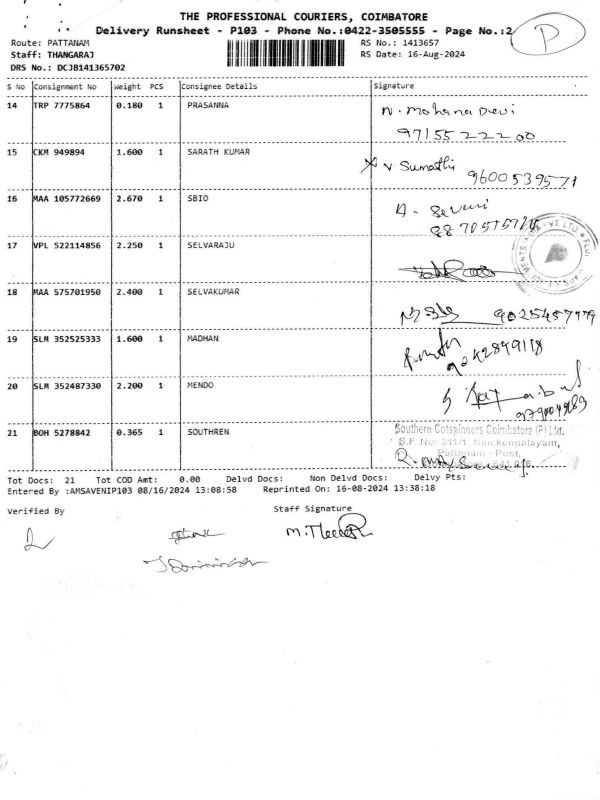 THE PROFESSIONAL COURIERS, COIMBATORE
Delivery Runsheet - P103 - Phone No.:0422-3505555 - Page No.:2
P
Route: PATTANAM
RS No.: 1413657
Staff: THANGARAJ
RS Date: 16-Aug-2024
DRS No.: DCJB141365702
S No Consignment No Weight PCS Consignee Details Signature
14 TRP 7775864 0.180 1 PRASANNA N. Mohana Devi
97155 22200
15 CKM 949894 1.600 1 SARATH KUMAR V Sumathi
9600539571
16 MAA 105772669 2.670 1 SBIO
17 VPL 522114856 2.250 1 SELVARAJU
18 MAA 575701950 2.400 1 SELVAKUMAR
19 SLM 352525333 1.600 1 MADHAN
20 SLM 352487330 2.200 1 MENDO
21 BOH 5278842 0.365 1 SOUTHREN
Southern Cotspinners Coimbatore (P) Ltd.
S.F. No: 311/1, Naickenpalayam,
Pattanam - Post,
Tot Docs: 21 Tot COD Amt: 0.00 Delvd Docs: Non Delvd Docs: Delvy Pts:
Entered By :AMSAVENIP103 08/16/2024 13:08:58 Reprinted On: 16-08-2024 13:38:18
Verified By
Staff Signature